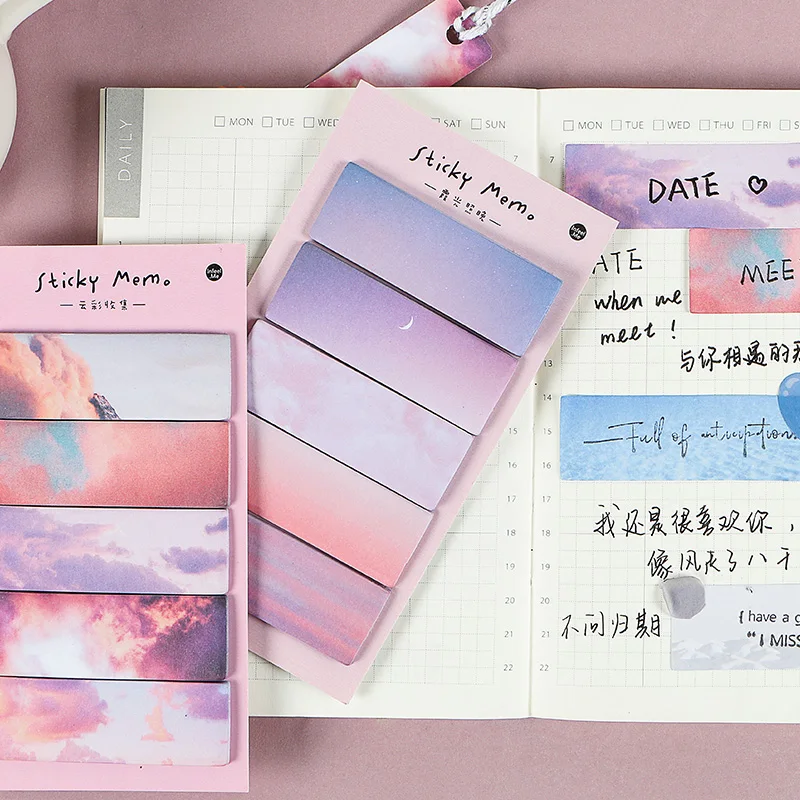 DAILY
MON TUE WED SAT SUN
MON TUE WED THU FRI S
7
7
Sticky Memo
霞光照晚
Infeel Me
DATE ♡
ATE
MEE
when we
meet!
与你相遇的
Sticky Memo
云彩收集
Infeel Me
13
14
15
15
16
16
17
17
18
18
19
19
20
20
21
21
22
22
Full of anticipation
我还是很喜欢你，
像风走了八千
不问归期
I have a g
"I MISS